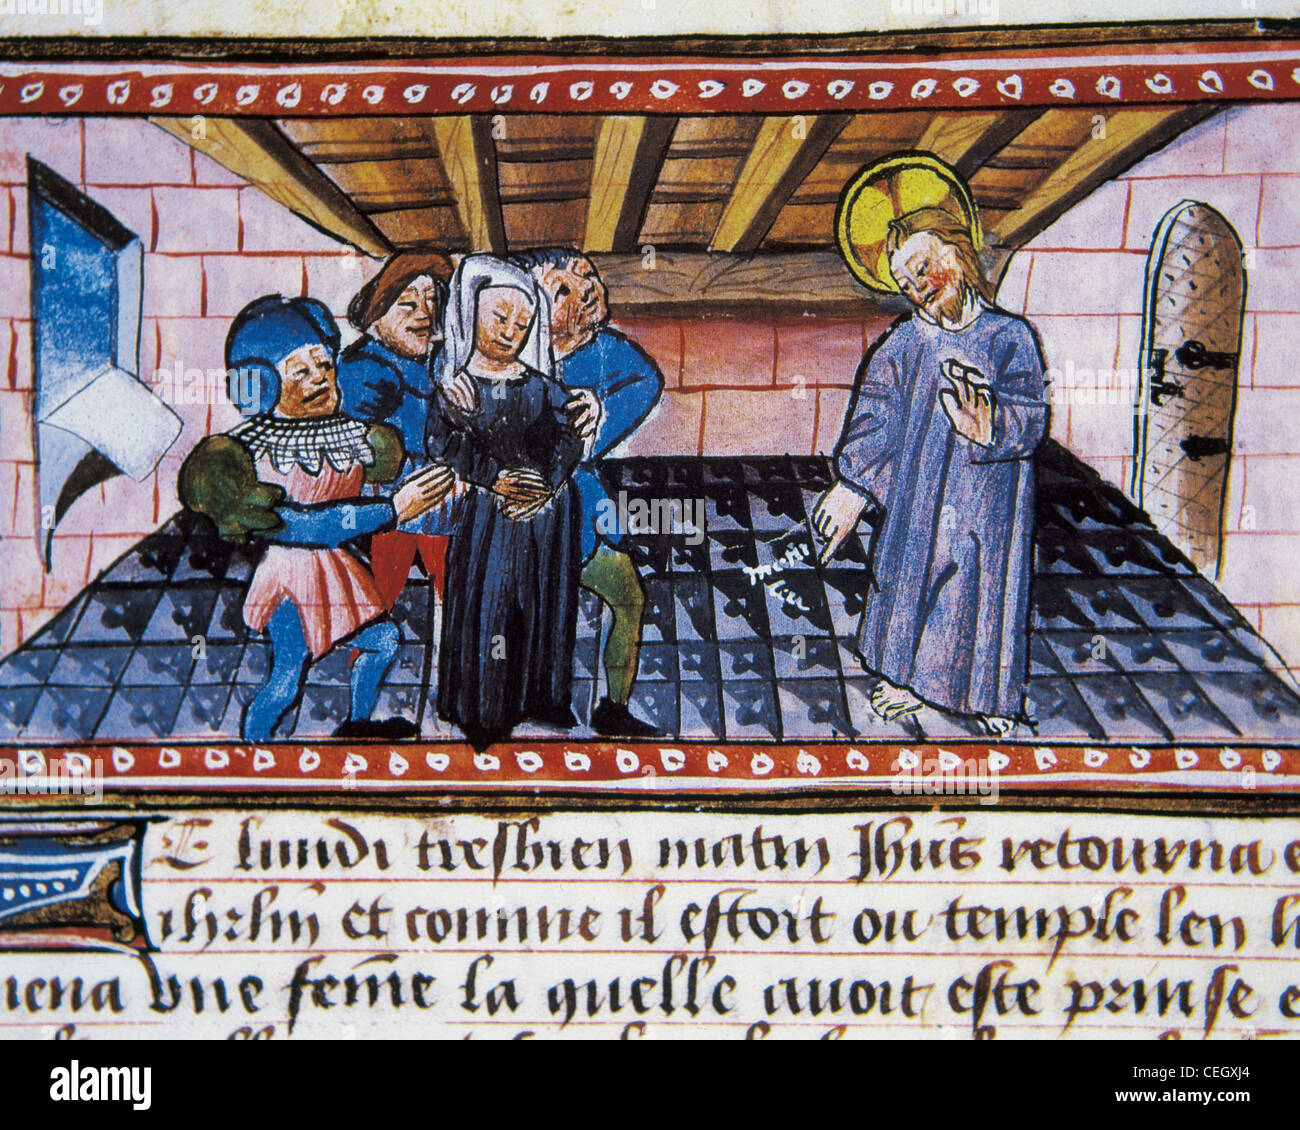 Et lundi tresbien matin Jhus retourna e
ihrlm et comme il estoit ou temple len
une feme la quelle avoit este prinse e
a
alamy
Image ID: CEGXJ4
www.alamy.com